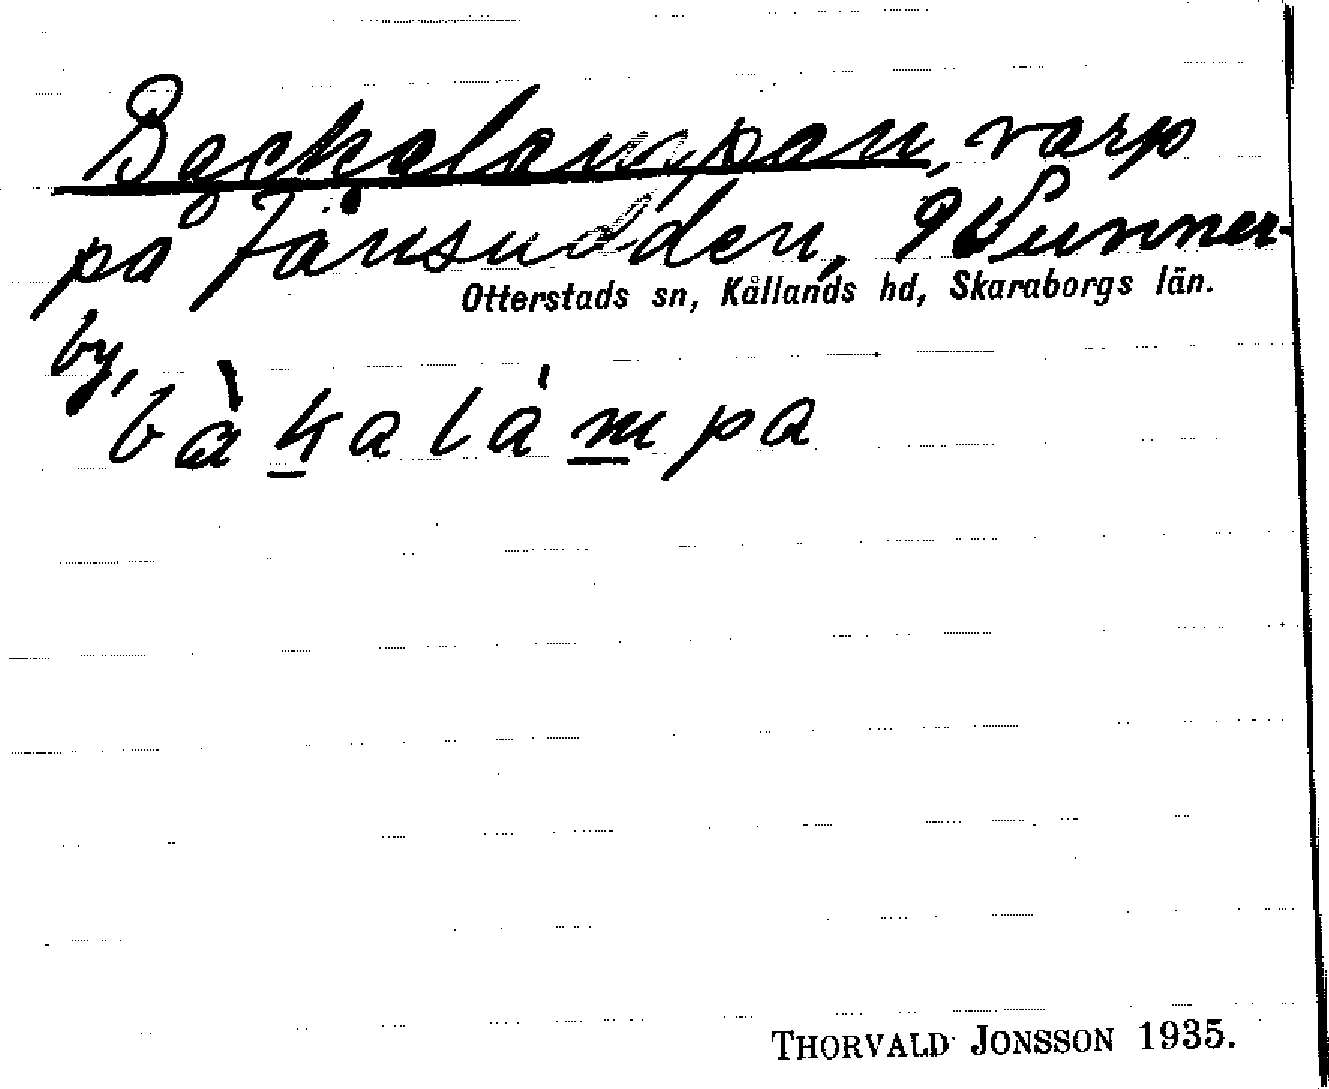 Backalampan, varp
på Jänsudden, Sunner-
Otterstads sn, Kållands hd, Skaraborgs län.
by,
bàkalámpa
THORVALD JONSSON 1935.